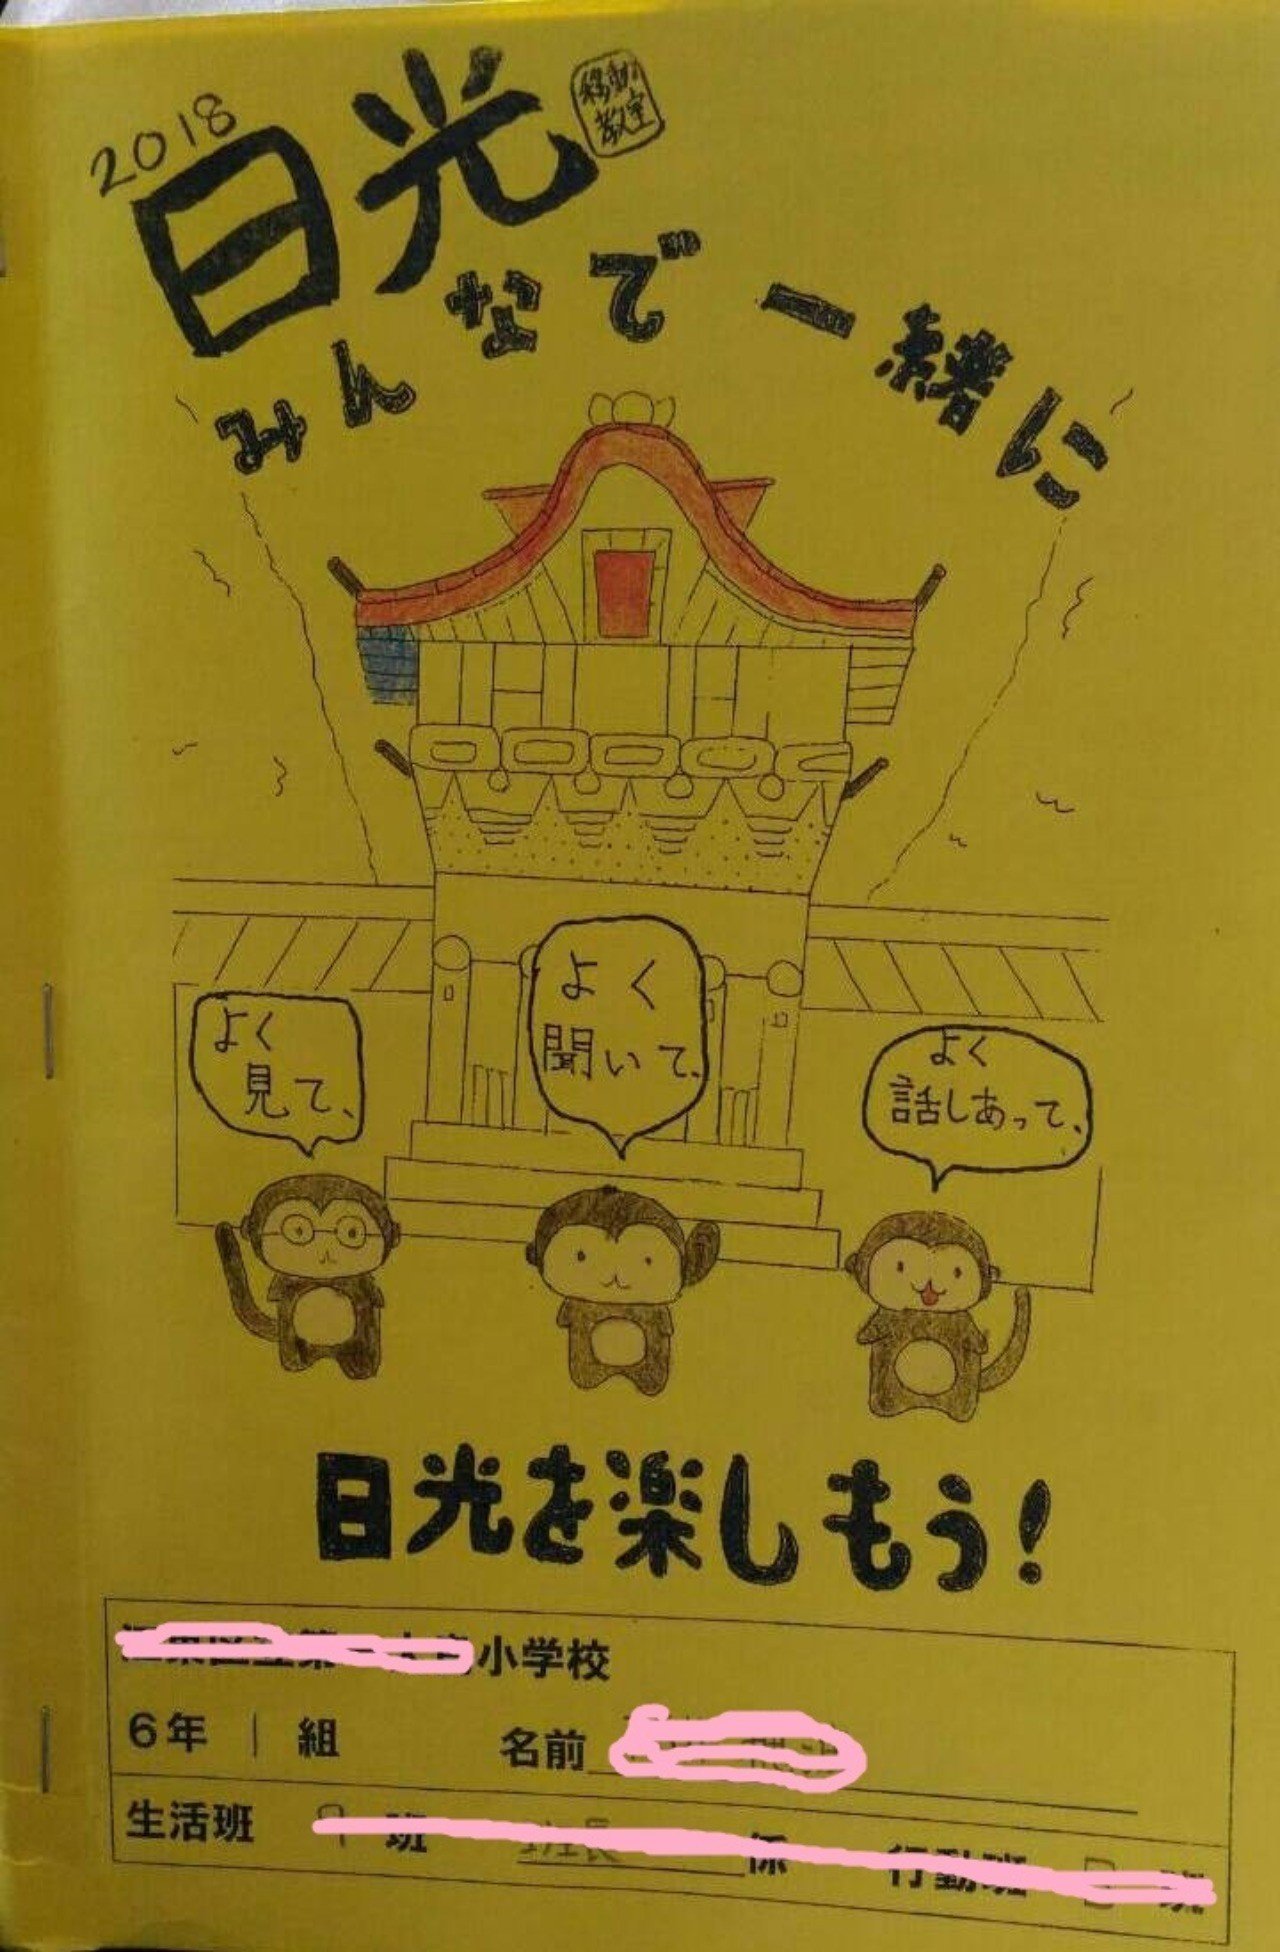 2018
日光
移動
教室
みんなで一緒に
よく
見て、
よく
聞いて、
よく
話しあって、
日光を楽しもう!
小学校
6年 1 組 名前
生活班 班 係 行動班 班